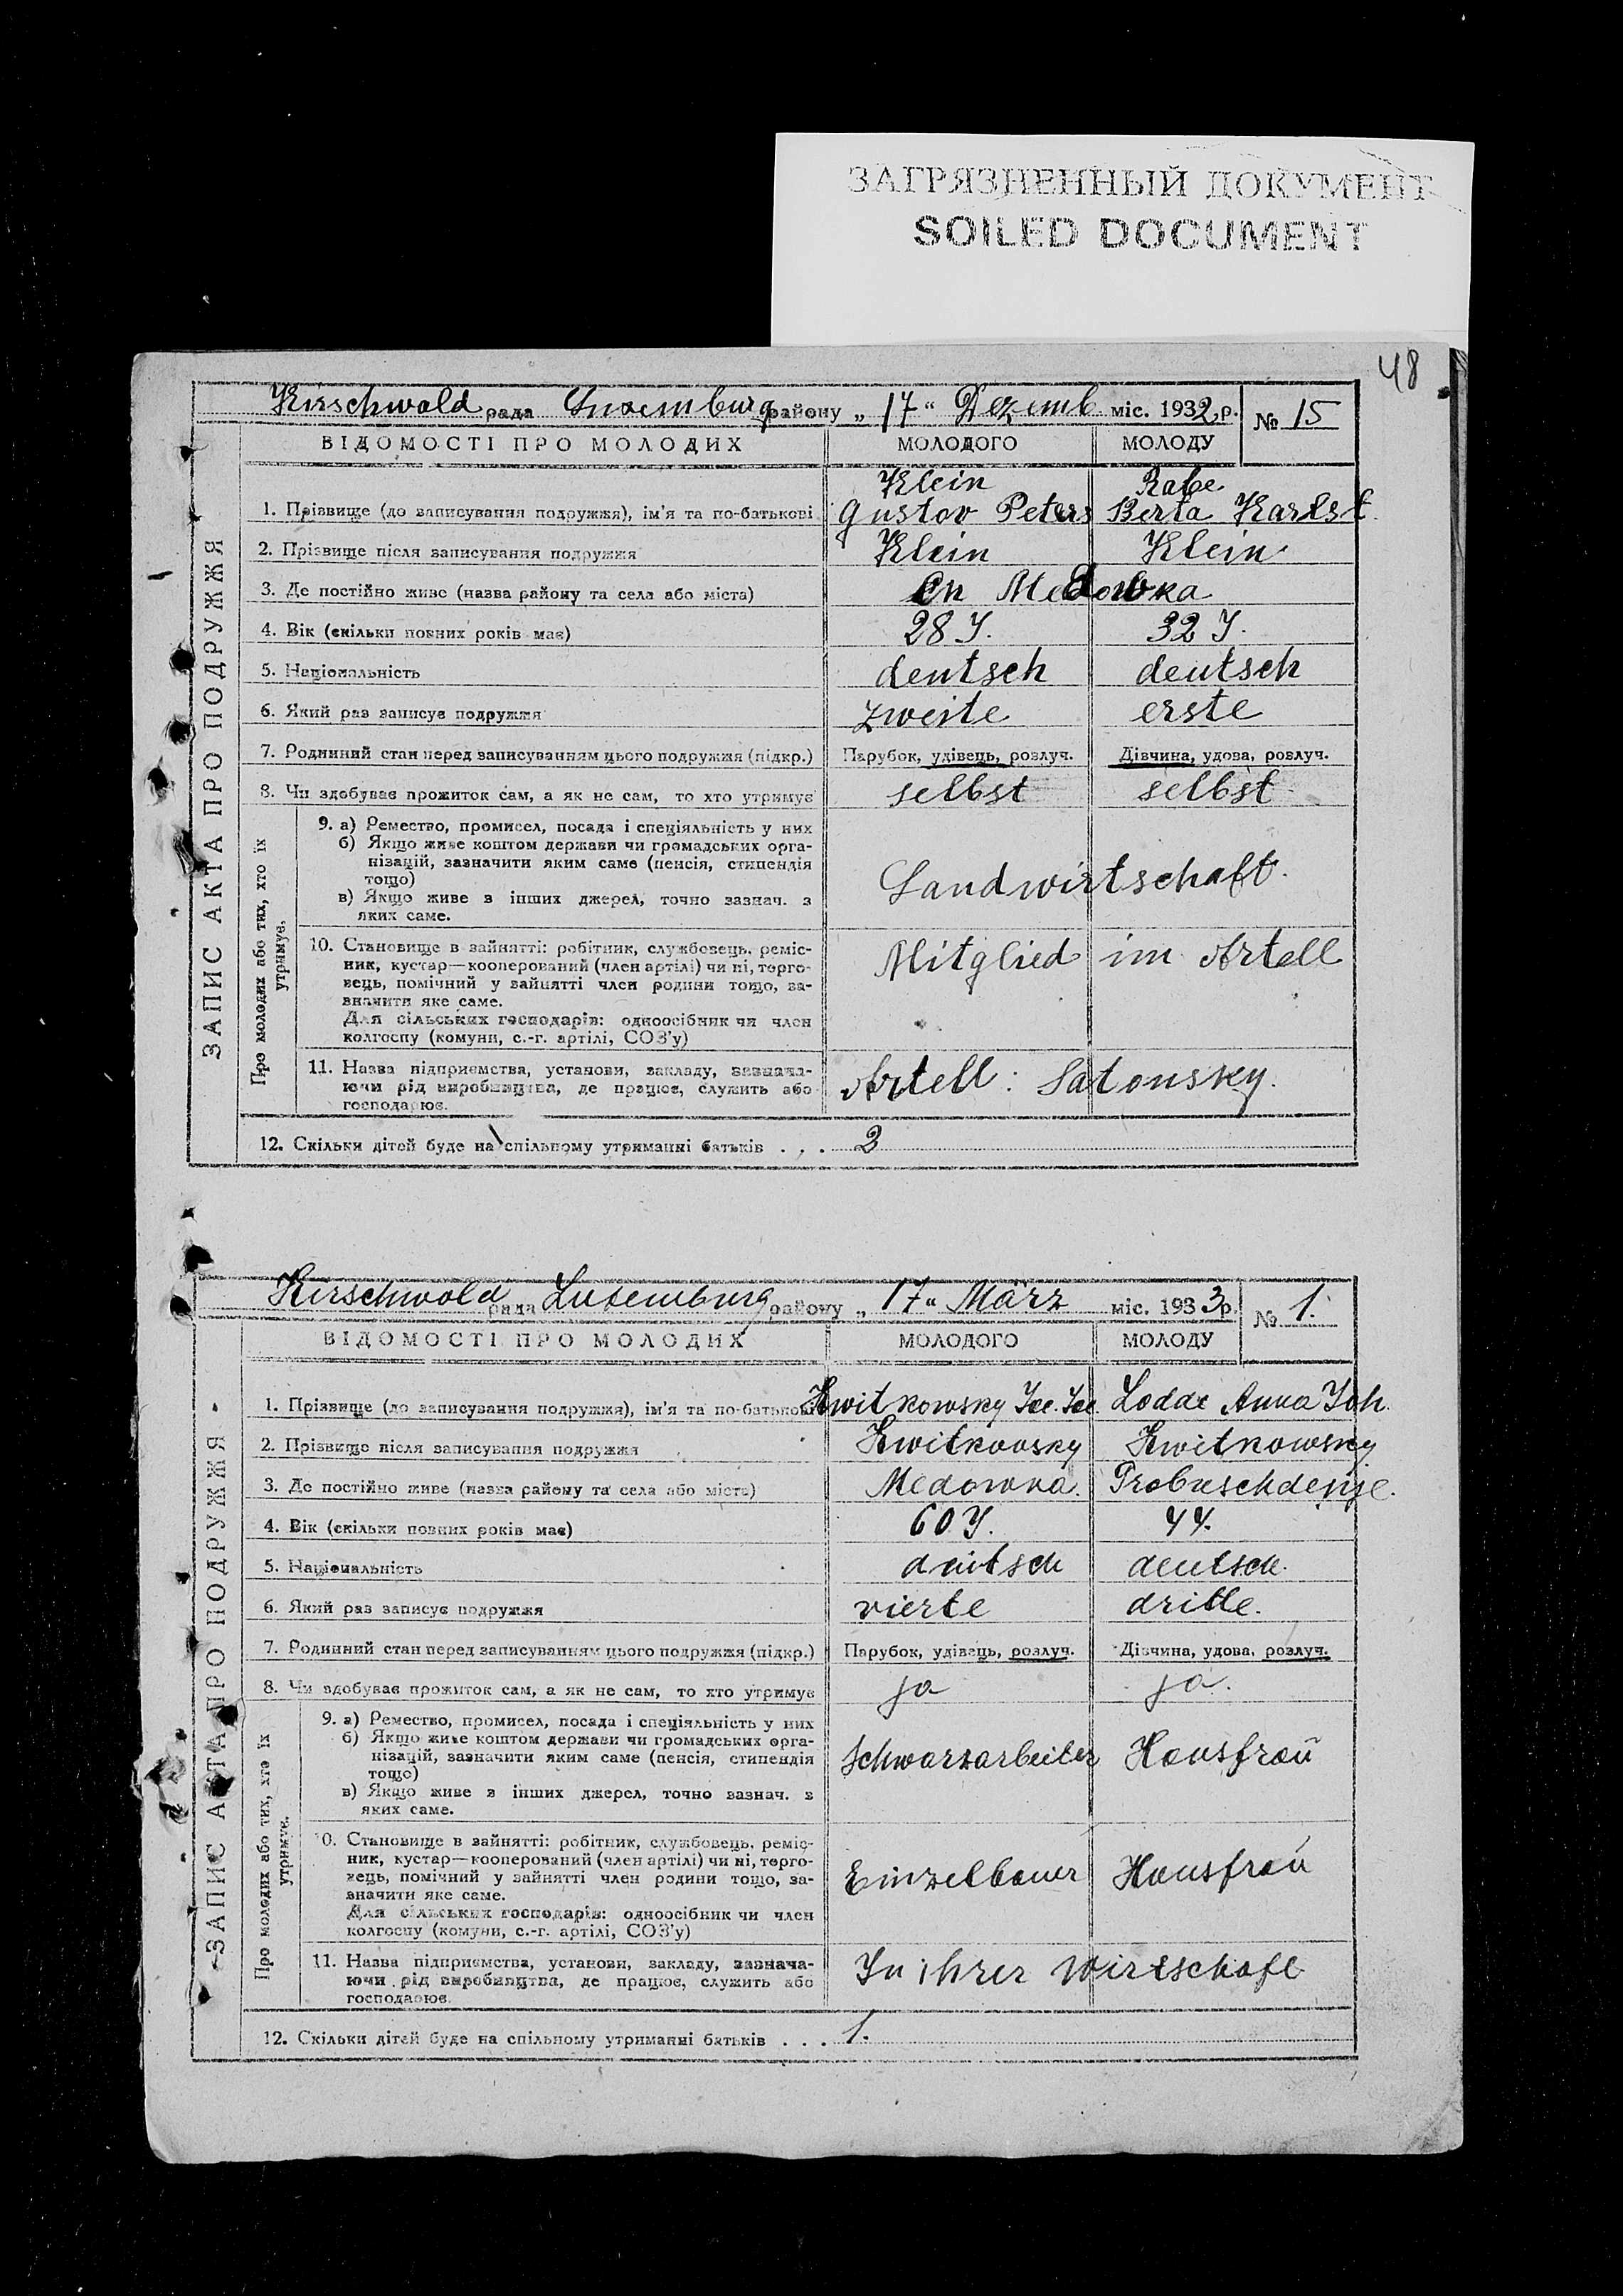 ЗАГРЯЗНЕННЫЙ ДОКУМЕНТ
SOILED DOCUMENT
48
Kirschwald рада Luxemburg району „ 17 “ Dezemb. міс. 1932 р. № 15
ЗАПИС АКТА ПРО ПОДРУЖЖЯ
ВІДОМОСТІ ПРО МОЛОДИХ МОЛОДОГО МОЛОДУ
Klein Rabe
1. Прізвище (до записування подружжя), ім'я та по-батькові Gustov Peters Berta Karlst.
2. Прізвище після записування подружжя Klein Klein
3. Де постійно живе (назва району та села або міста) In Medowka
4. Вік (скільки повних років має) 28 J. 32 J.
5. Національність deutsch deutsch
6. Який раз записує подружжя zweite erste
7. Родинний стан перед записуванням цього подружжя (підкр.) Парубок, удівець, розлуч. Дівчина, удова, розлуч.
8. Чи здобуває прожиток сам, а як не сам, то хто утримує selbst selbst
Про молодих або тих, хто їх
утримує.
9. а) Ремество, промисел, посада і спеціяльність у них
б) Якщо живе коштом держави чи громадських орга-
нізацій, зазначити яким саме (пенсія, стипендія
тощо) Landwirtschaft.
в) Якщо живе з інших джерел, точно зазнач. з
яких саме.
10. Становище в зайнятті: робітник, службовець, реміс-
ник, кустар—кооперований (член артілі) чи ні, торго- Mitglied im Artell
вець, помічний у зайнятті член родини тощо, за-
значити яке саме.
Для сільських господарів: одноосібник чи член
колгоспу (комуни, с.-г. артілі, СОЗ'у)
11. Назва підприємства, установи, закладу, зазнача-
ючи рід виробництва, де працює, служить або Artell: Satonsky.
господарює.
12. Скільки дітей буде на спільному утриманні батьків . . . 2
Kirschwald рада Luxemburg району „ 17 “ März міс. 1933 р. № 1.
ЗАПИС АКТА ПРО ПОДРУЖЖЯ
ВІДОМОСТІ ПРО МОЛОДИХ МОЛОДОГО МОЛОДУ
1. Прізвище (до записування подружжя), ім'я та по-батькові Kwitkowsky Lodde Anna Joh.
2. Прізвище після записування подружжя Kwitkowsky Kwitkowsky
3. Де постійно живе (назва району та села або міста) Medowka. Probuschdenje.
4. Вік (скільки повних років має) 60 J. 44.
5. Національність deutsch deutsch.
6. Який раз записує подружжя vierte dritte.
7. Родинний стан перед записуванням цього подружжя (підкр.) Парубок, удівець, розлуч. Дівчина, удова, розлуч.
8. Чи здобуває прожиток сам, а як не сам, то хто утримує ja ja.
Про молодих або тих, хто їх
утримує.
9. а) Ремество, промисел, посада і спеціяльність у них
б) Якщо живе коштом держави чи громадських орга-
нізацій, зазначити яким саме (пенсія, стипендія Schwarzarbeiter Hausfraŭ
тощо)
в) Якщо живе з інших джерел, точно зазнач. з
яких саме.
0. Становище в зайнятті: робітник, службовець, реміс-
ник, кустар—кооперований (член артілі) чи ні, торго-
вець, помічний у зайнятті член родини тощо, за- Einzelbauer Hausfraŭ
значити яке саме.
Для сільських господарів: одноосібник чи член
колгоспу (комуни, с.-г. артілі, СОЗ'у)
11. Назва підприємства, установи, закладу, зазнача-
ючи рід виробництва, де працює, служить або In ihrer Wirtschaft
господарює.
12. Скільки дітей буде на спільному утриманні батьків . . . 1.